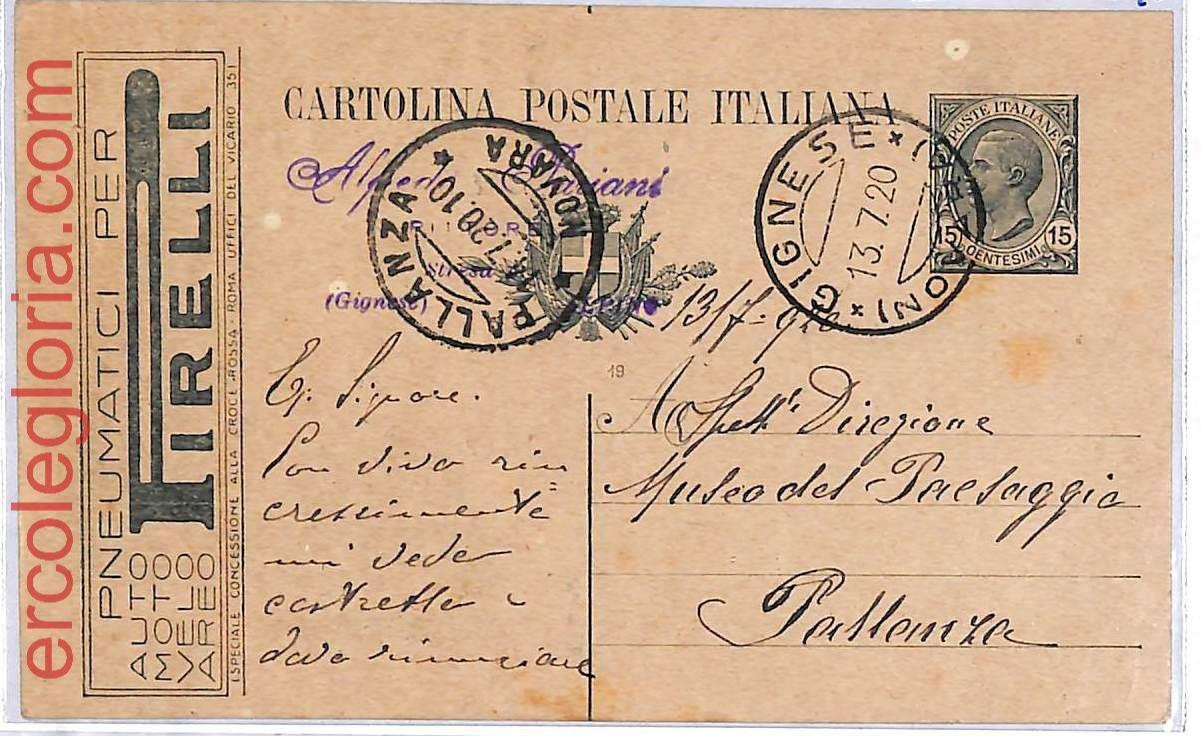 ercolegloria.com
PNEUMATICI PER
PIRELLI
AUTO
MOTO
VELO
AREO
(SPECIALE CONCESSIONE ALLA CROCE ROSSA - ROMA UFFICI DEL VICARIO 35)
CARTOLINA POSTALE ITALIANA
POSTE ITALIANE
15 CENTESIMI 15
Alfredo
PITTORE
Stresa
(Gignese)
PALLANZA * NOVARA *
20.10
GIGNESE
13.7.20
13/7-920
19
Eg. Signore.
Con vivo rin
crescimento
mi vedo
costretto a
dover rinunziare
A Spett. Direzione
Museo del Paesaggio
Pallanza